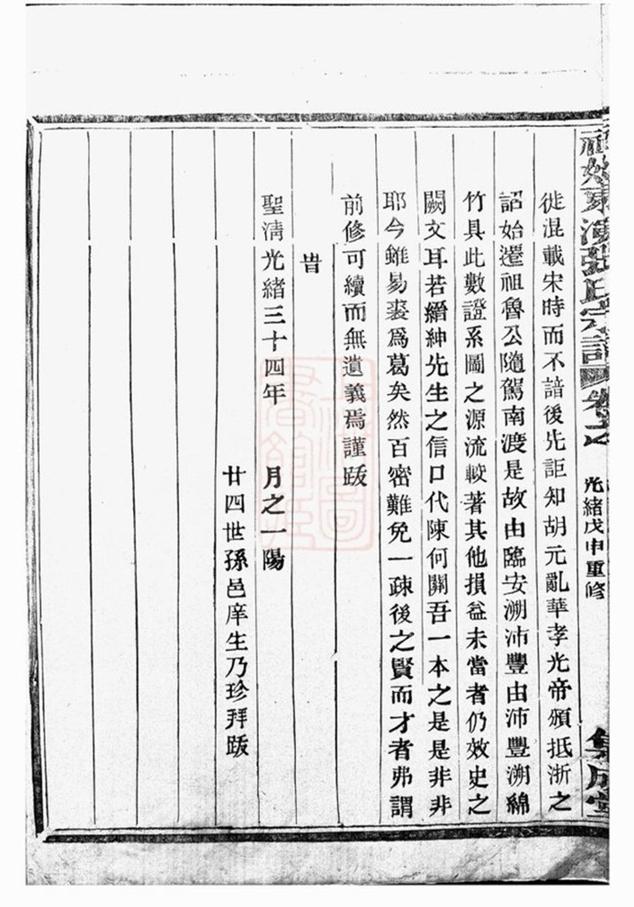 張氏宗譜
光緒戊申重修
集成堂
徙混載宋時而不諳後先詎知胡元亂華孝光帝頒抵浙之
詔始遷祖魯公隨駕南渡是故由臨安溯沛豐由沛豐溯綿
竹具此數證系圖之源流較著其他損益未當者仍效史之
闕文耳若縉紳先生之信口代陳何關吾一本之是是非非
耶今雖易裘爲葛矣然百密難免一疎後之賢而才者弗謂
前修可續而無遺義焉謹跋
旹
聖淸光緒三十四年 月之一陽
廿四世孫邑庠生乃珍拜跋